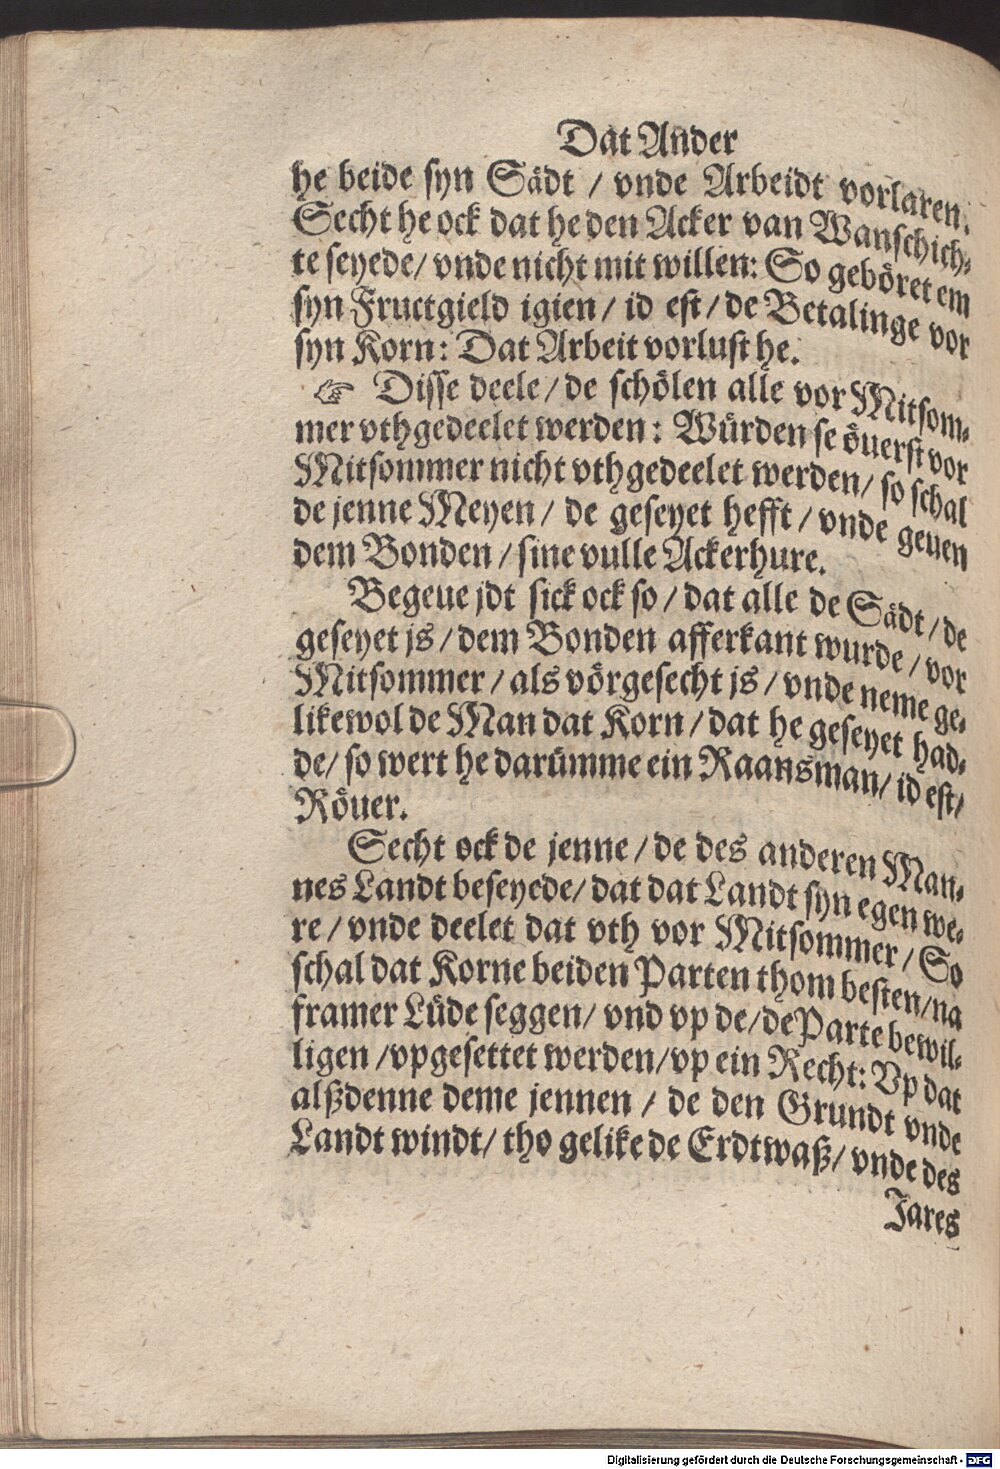 Dat Ander
he beide syn Sädt / vnde Arbeidt vorlaren.
Secht he ock dat he den Acker van Wanschich-
te seyede/ vnde nicht mit willen: So geböret em
syn Fructgield igien/ id est/ de Betalinge vor
syn Korn: Dat Arbeit vorlust he.
☞ Disse deele/ de schölen alle vor Mitsom-
mer vthgedeelet werden: Würden se öuerst vor
Mitsommer nicht vthgedeelet werden/ so schal
de jenne Meyen/ de geseyet hefft/ vnde geuen
dem Bonden/ sine vulle Ackerhure.
Begeue jdt sick ock so/ dat alle de Sädt/ de
geseyet js/ dem Bonden afferkant wurde/ vor
Mitsommer/ als vörgesecht js/ vnde neme ge-
likewol de Man dat Korn/ dat he geseyet had-
de/ so wert he darümme ein Raansman/ id est/
Röuer.
Secht ock de jenne/ de des anderen Man-
nes Landt beseyede/ dat dat Landt syn egen we-
re/ vnde deelet dat vth vor Mitsommer/ So
schal dat Korne beiden Parten thom besten/ na
framer Lüde seggen/ vnd vp de/ de Parte bewil-
ligen/ vpgesettet werden/ vp ein Recht: Vp dat
alßdenne deme jennen/ de den Grundt vnde
Landt windt/ tho gelike de Erdtwaß/ vnde des
Jares
Digitalisierung gefördert durch die Deutsche Forschungsgemeinschaft - DFG